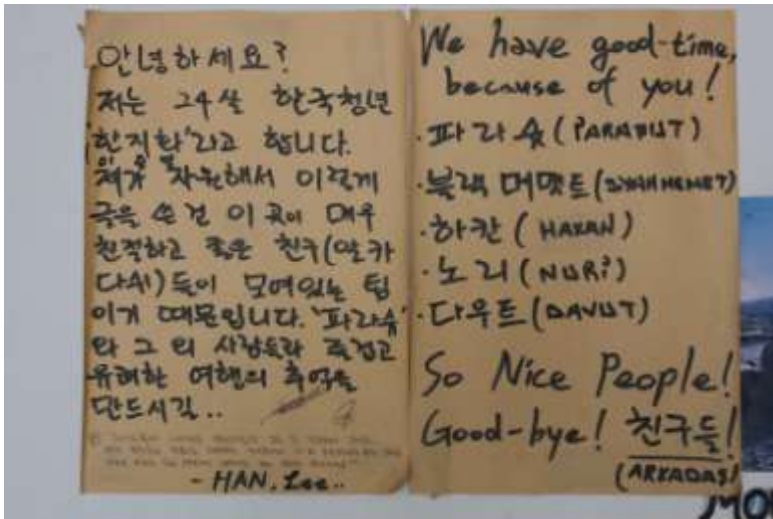 안녕하세요?
저는 24살 한국청년
'한지화'라고 합니다.
제가 자원해서 이렇게
글을 쓴 건 이 곳이 매우
친절하고 좋은 친구(알카
다쉬)들이 모여있는 팀
이기 때문입니다. '파라슈'
와 그 외 사람들과 즐겁고
유쾌한 여행의 추억을
만드시길..
- HAN. Lee..
We have good-time,
because of you!
·파라슛 (PARASUT)
·블랙 메멧트 (SIYAH MEMET)
·하칸 (HAKAN)
·노리 (NURi)
·다우트 (DAVUT)
So Nice People!
Good-bye! 친구들!
(ARKADAŞ)
MO